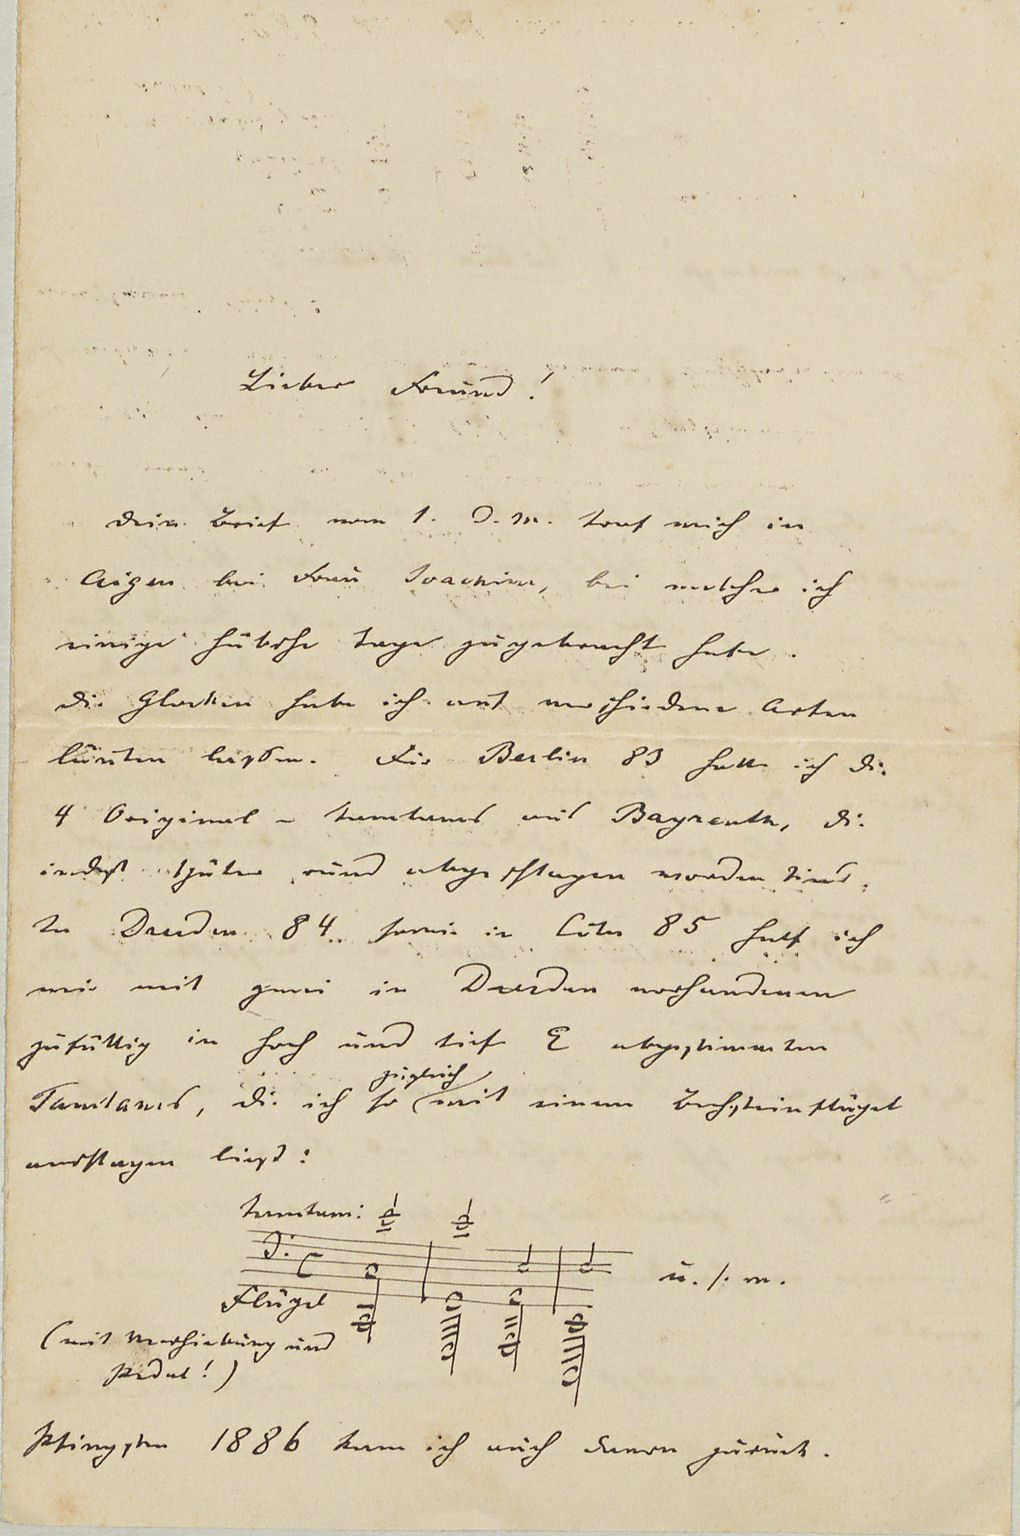 Lieber Freund!
Dein Brief vom 1. d. M. traf mich in
Aigen bei Frau Joachim, bei welcher ich
einige hübsche Tage zugebracht habe.
Die Glocken habe ich auf verschiedene Arten
läuten lassen. Für Berlin 83 hatte ich die
4 Original-Tamtams aus Bayreuth, die
indeß später rund abgeschlagen worden sind.
In Dresden 84 sowie in Cöln 85 half ich
mir mit zwei in Dresden vorhandenen
zufällig in hoch und tief E abgestimmten
Tamtams, die ich so zugleich mit einem Bechsteinflügel
anschlagen ließ:
Tamtam:
Flügel
u. s. w.
(mit Verschiebung und
Pedal!)
Pfingsten 1886 kam ich auch davon zurück.